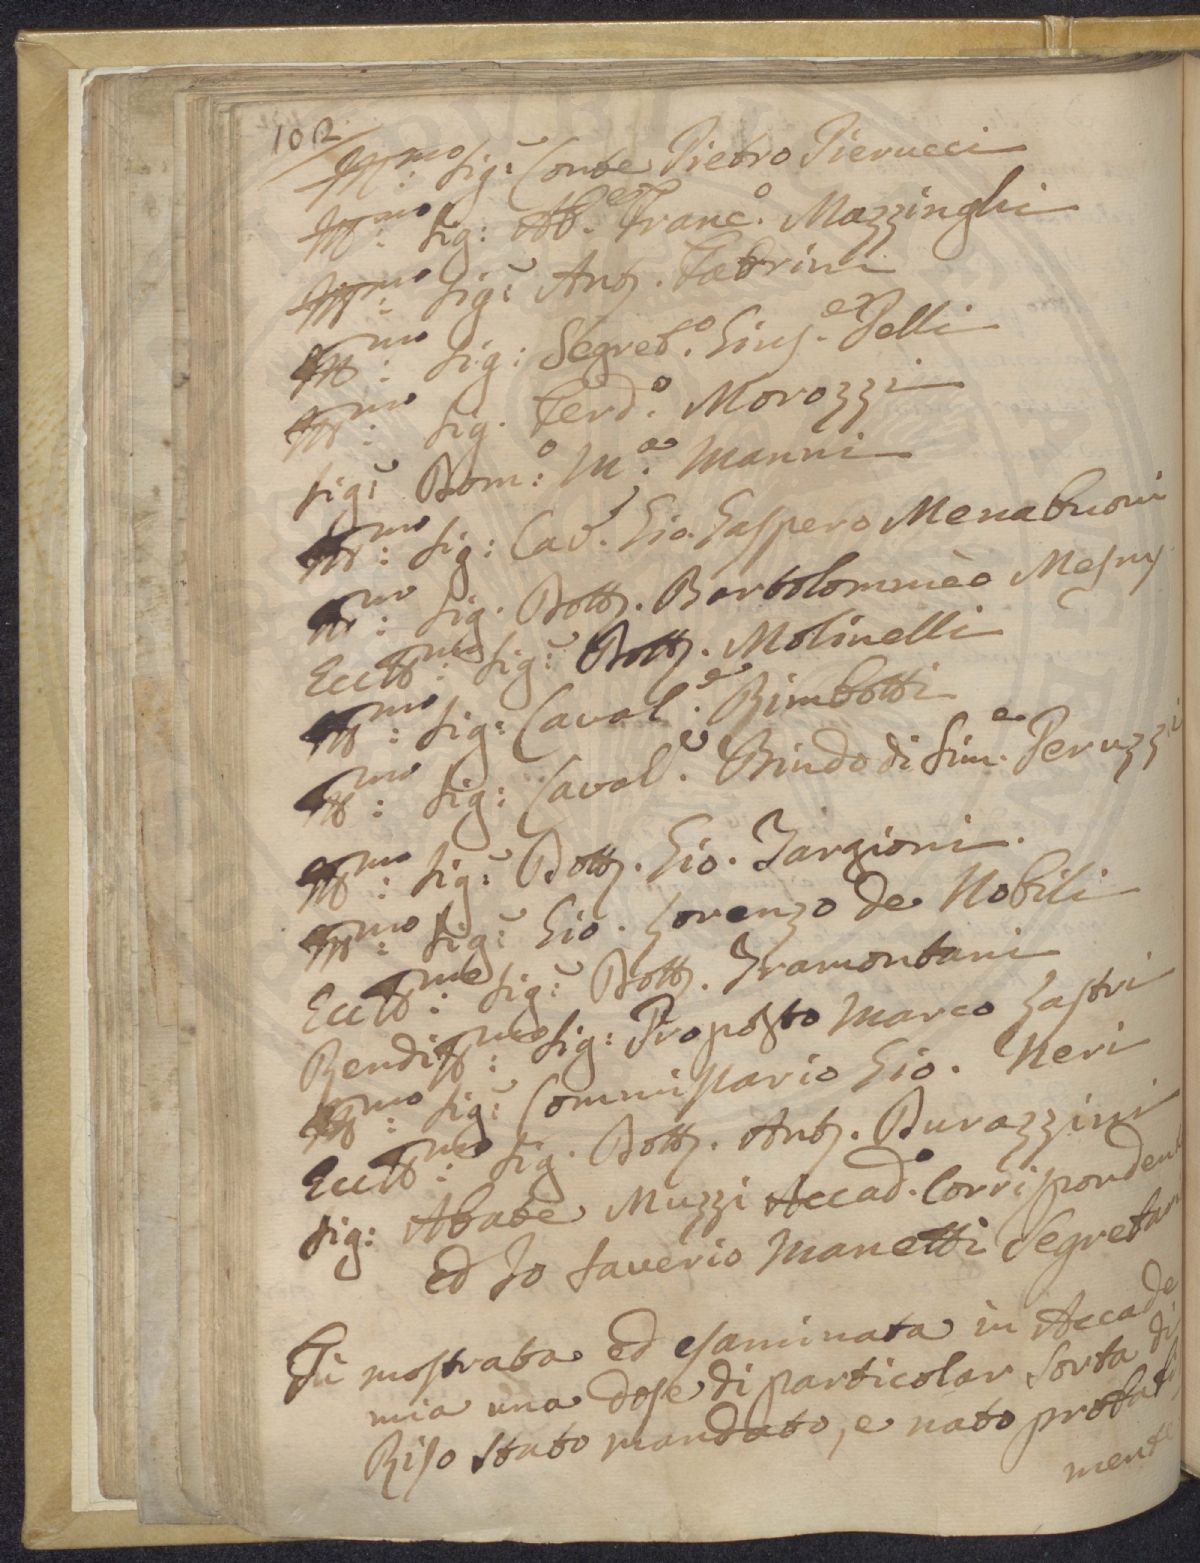 102
Ill.mo Sig.r Conte Pietro Pierucci
Ill.mo Sig: Ab.e Franc.o Mazzinghi
Ill.mo Sig.r Ant. Fabrini
Ill.mo Sig: Segret.o Gius.e Pelli
Ill.mo Sig. Ferd.o Morozzi
Sig.r Dom.o M.a Manni
Ill.mo Sig: Cav.r Gio. Gaspero Menabuoni
Ill.mo Sig. Dott. Bartolommèo Mesny
Eccll.mo Sig.r Dott. Molinelli
Ill.mo Sig: Caval.e Bimbotti
Ill.mo Sig: Caval.r Bindo di Sim.e Peruzzi
Ill.mo Sig.r Dott. Gio. Targioni.
Ill.mo Sig.r Gio. Lorenzo de Nobili
Eccll.mo Sig.r Dott. Tramontani
Rendiss.mo Sig: Proposto Marco Lastri
Ill.mo Sig.r Commissario Gio. Neri
Eccll.mo Sig. Dott. Ant. Durazzini
Sig: Abate Muzzi Accad.o Corrispondent
Ed Io Saverio Manetti Segretar
Fù mostrata Ed esaminata in Accade
mia una dose di particolar Sorta di
Riso Stato mandato, e nato probabil
mente